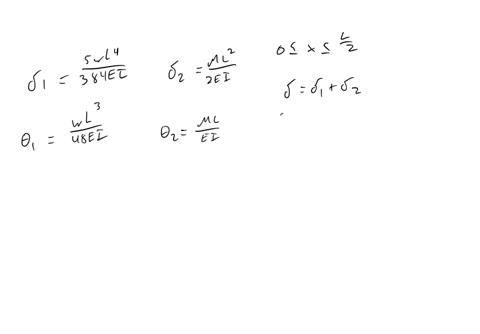 δ₁ = 5wL⁴/384EI
δ₂ = ML²/2EI
0 ≤ x ≤ L/2
δ = δ₁ + δ₂
θ₁ = wL³/48EI
θ₂ = ML/EI